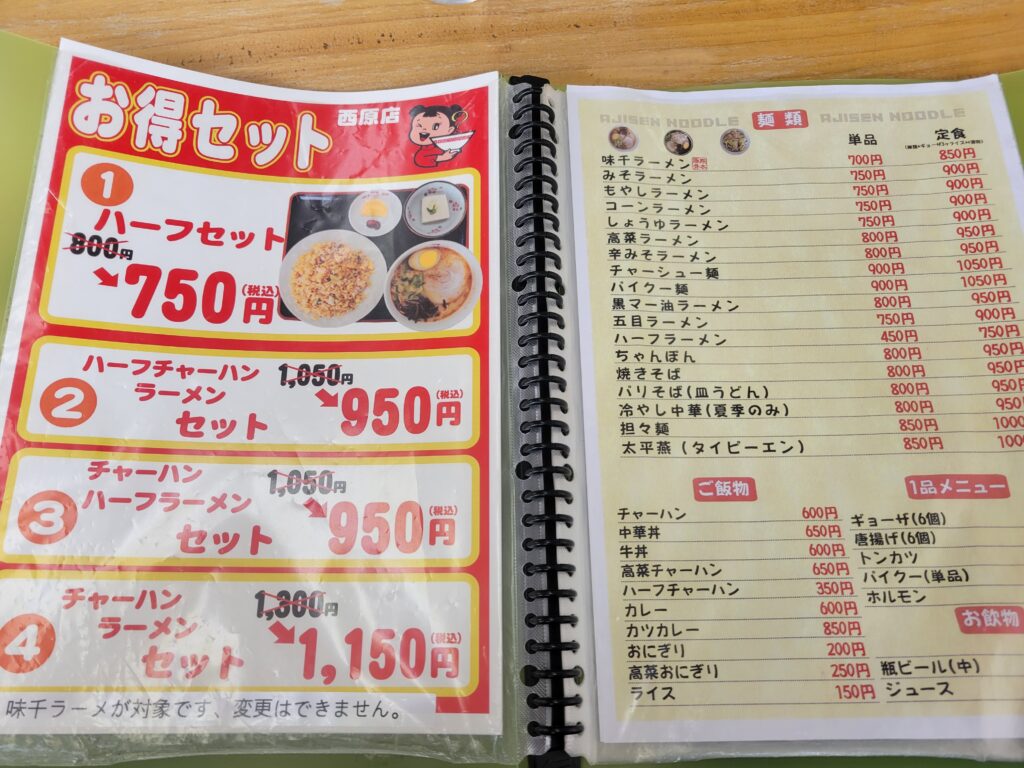 お得セット 西原店
1
ハーフセット
800円
750円(税込)
2
ハーフチャーハン
ラーメン
セット
1,050円
950円(税込)
3
チャーハン
ハーフラーメン
セット
1,050円
950円(税込)
4
チャーハン
ラーメン
セット
1,300円
1,150円(税込)
味千ラーメが対象です、変更はできません。
AJISEN NOODLE 麺類 AJISEN NOODLE
単品 定食
味千ラーメン 700円 850円
みそラーメン 750円 900円
もやしラーメン 750円 900円
コーンラーメン 750円 900円
しょうゆラーメン 750円 900円
高菜ラーメン 800円 950円
辛みそラーメン 800円 950円
チャーシュー麺 900円 1050円
パイクー麺 900円 1050円
黒マー油ラーメン 800円 950円
五目ラーメン 750円 900円
ハーフラーメン 450円 750円
ちゃんぽん 800円 950円
焼きそば 800円 950円
バリそば(皿うどん) 800円 950
冷やし中華(夏季のみ) 800円 950
担々麺 850円 1000
太平燕(タイピーエン) 850円 1000
ご飯物
チャーハン 600円
中華丼 650円
牛丼 600円
高菜チャーハン 650円
ハーフチャーハン 350円
カレー 600円
カツカレー 850円
おにぎり 200円
高菜おにぎり 250円
ライス 150円
1品メニュー
ギョーザ(6個)
唐揚げ(6個)
トンカツ
パイクー(単品)
ホルモン
お飲物
瓶ビール(中)
ジュース